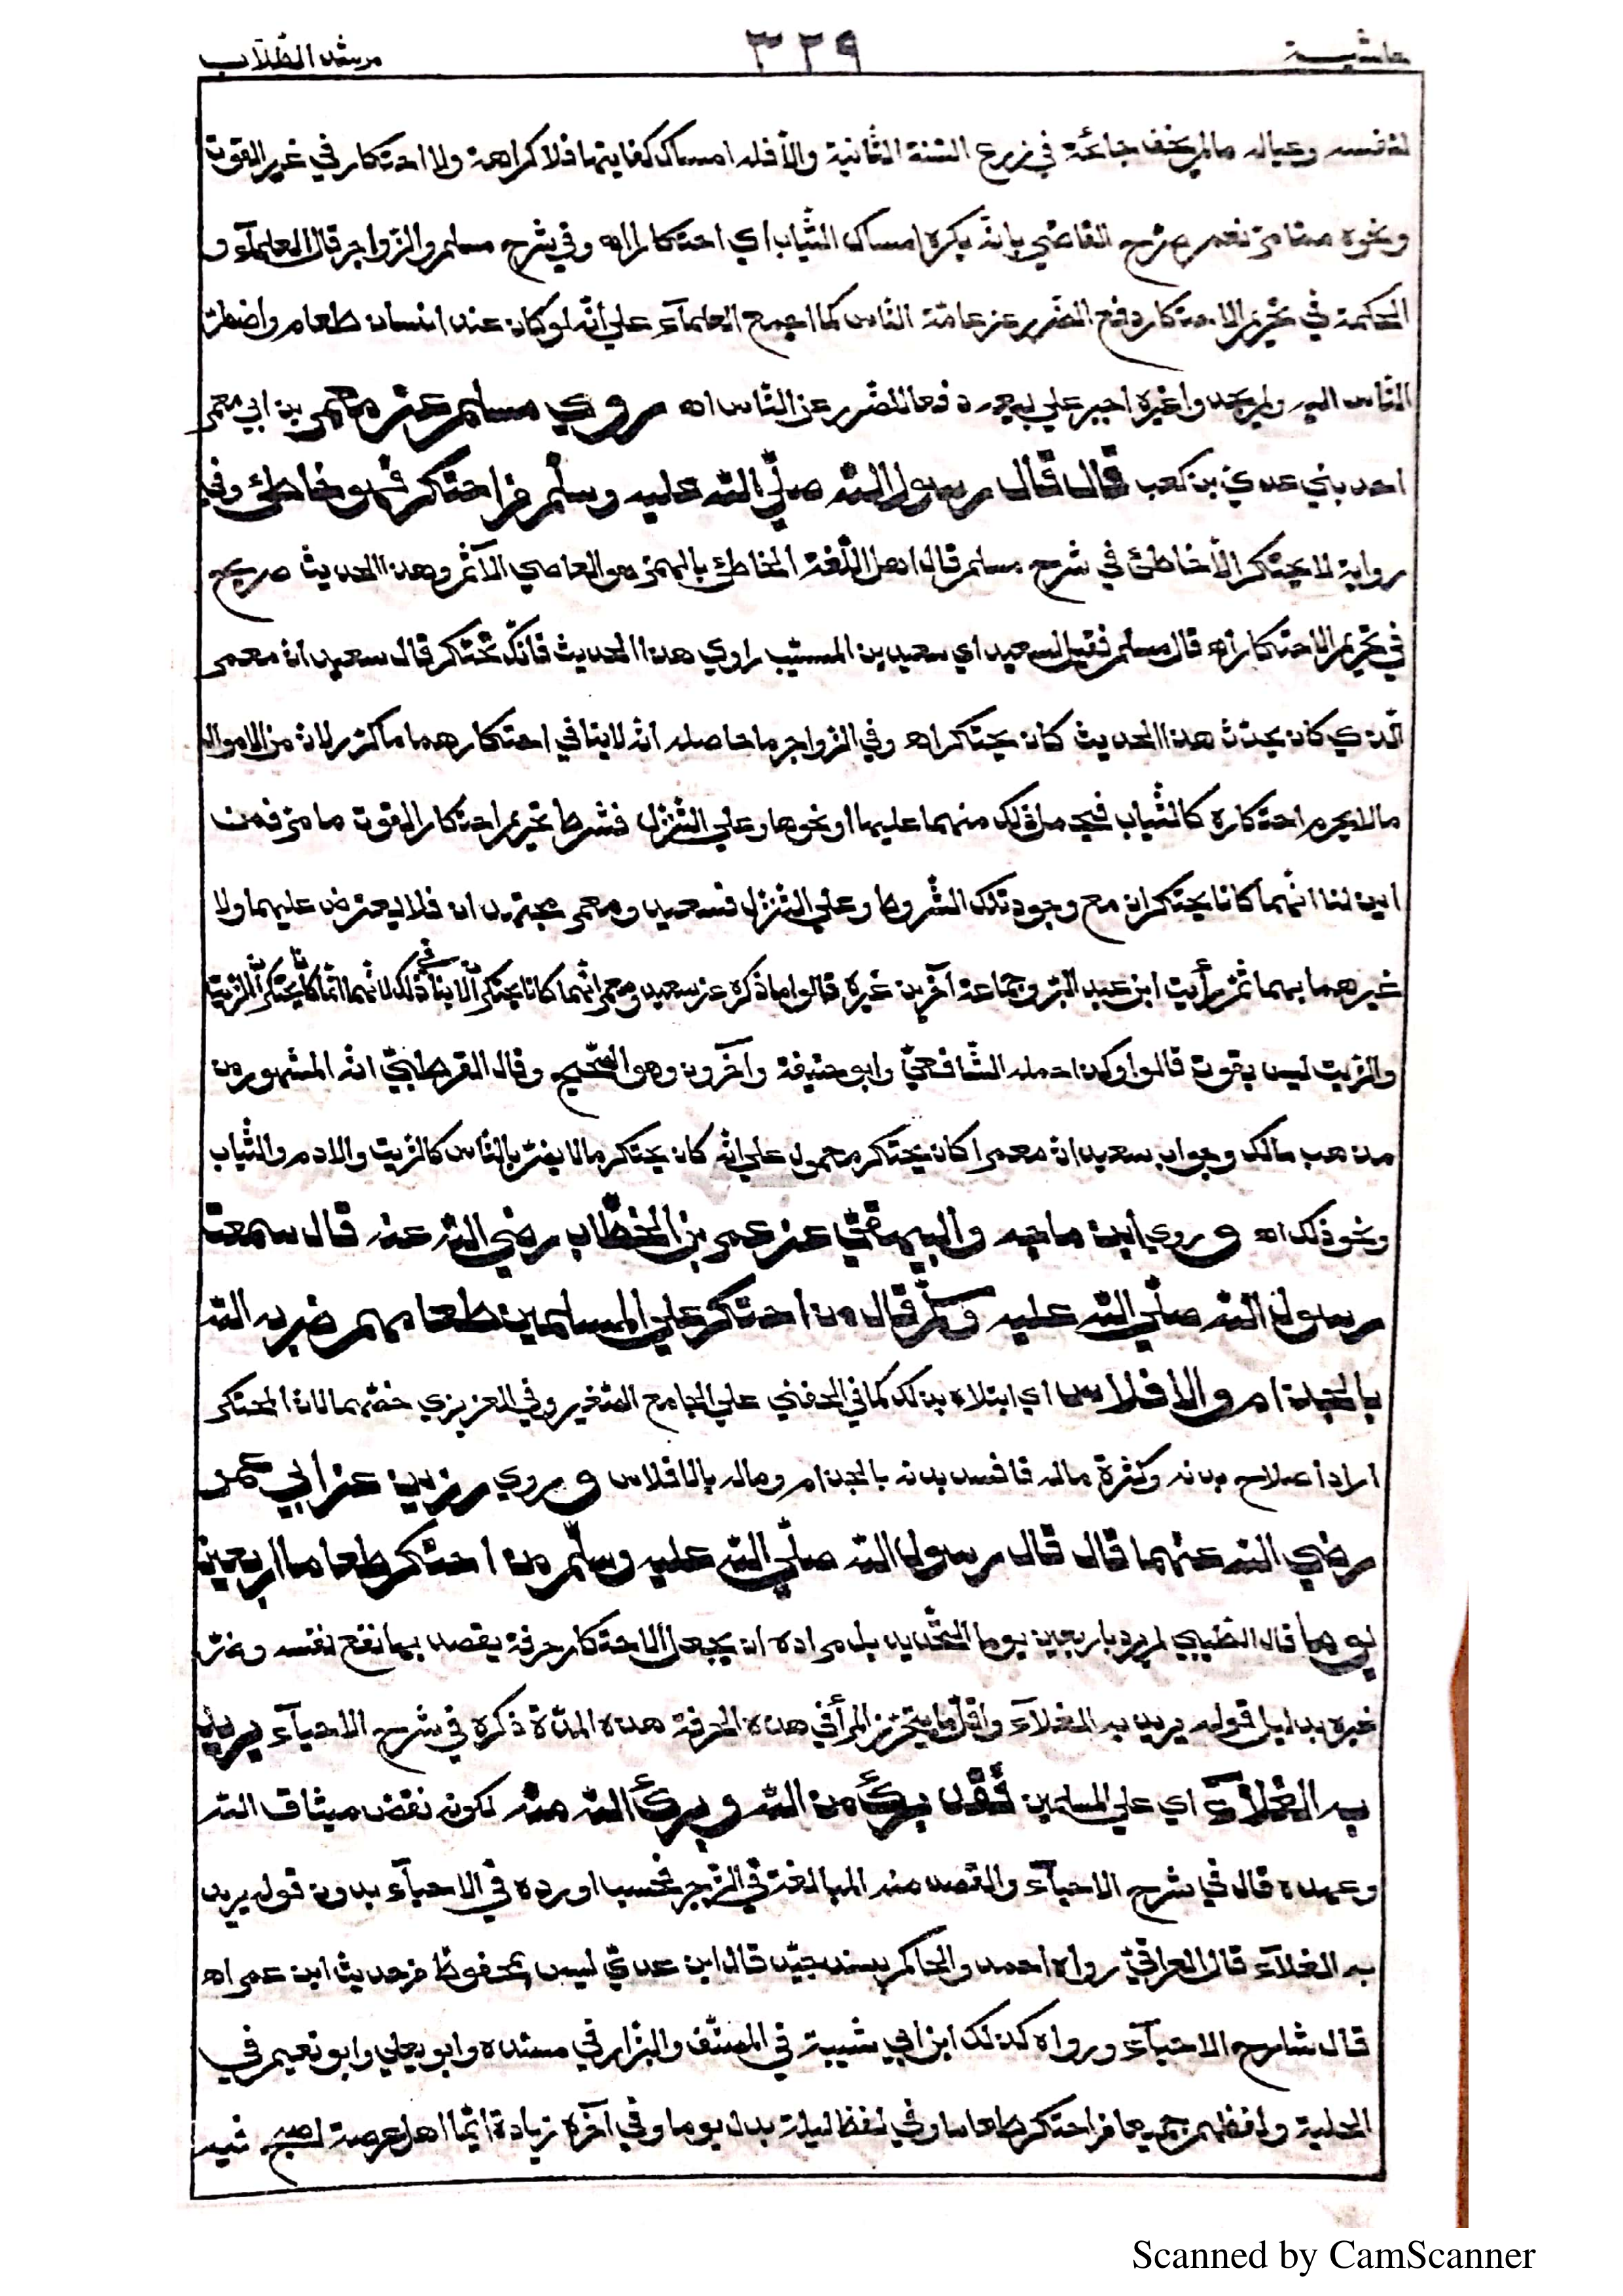 حاشية ٣٢٩ مرشد الطّلّاب
لنفسه وعياله مالم يخف جائحة في زرع السّنة الثّانية والّا فله امساك كفايتها فلا كراهة ولا احتكار في غير القوت
ونحوه ممّا مرّ نعم صرّح القاضي بانّه يكره امساك الثّياب اي احتكارا اه وفي شرح مسلم والزّواجر قال العلمآء و
الحكمة في تحريم الاحتكار دفع الضّرر عن عامّة النّاس كما اجمع العلمآء علي انّه لو كان عند انسان طعام واضطرّ
النّاس اليه ولم يجدوا غيره اجبر علي بيعه دفعا للضّرر عن النّاس اه وروي مسلم عن معمر بن ابي معمر
احد بني عدي بن كعب قال قال رسول الله صلّي الله عليه وسلّم من احتكر فهو خاطئ وفي
رواية لا يحتكر الّا خاطئ في شرح مسلم قال اهل اللّغة الخاطئ بالهمز هو العاصي الآثم وهذا الحديث صريح
في تحريم الاحتكار اه قال مسلم فقيل لسعيد اي سعيد بن المسيّب راوي هذا الحديث فانّك تحتكر قال سعيد ان معمر
الّذي كان يحدّث هذا الحديث كان يحتكر اه وفي الزّواجر ما حاصله انّه لا ينافي احتكارهما ما ذكر لانّ من الاموال
ما لا يحرم احتكاره كالثّياب فيحمل ذلك منهما عليها او نحوها وعلي التّنزّل فشرط تحريم احتكار القوت ما مرّ فمن
اين لنا انّهما كانا يحتكران مع وجود تلك الشّروط وعلي التّنزّل فسعيد ومعمر مجتهدان فلا يعترض عليهما ولا
غيرهما بهما ثمّ رأيت ابن عبد البرّ وجماعة آخرين غيره قالوا ما ذكره عن سعيد ومعمر انّهما كانا يحتكران لا ينافي ذلك لانّهما انّما كانا يحتكران الزّيت
والزّيت ليس بقوت قالوا وكذا حمله الشّافعيّ وابو حنيفة وآخرون وهو الصّحيح وقال القرطبيّ انّه المشهور من
مذهب مالك وجواب سعيد انّ معمرا كان يحتكر محمول علي انّه كان يحتكر ما لا يضرّ بالنّاس كالزّيت والادم والثّياب
ونحو ذلك اه وروي ابن ماجه والبيهقيّ عن عمر بن الخطّاب رضي الله عنه قال سمعت
رسول الله صلّي الله عليه وسلّم قال من احتكر علي المسلمين طعامهم ضربه الله
بالجذام والافلاس اي ابتلاه بذلك كما في الحفني علي الجامع الصّغير وفي العزيزي خصّهما لانّ المحتكر
اراد اصلاح بدنه وكثرة ماله فافسد بدنه بالجذام وماله بالافلاس وروي رزين عن ابي عمر
رضي الله عنهما قال قال رسول الله صلّي الله عليه وسلّم من احتكر طعاما اربعين
يوما قال الطّيبي لم يرد باربعين يوما التّحديد بل مراده ان يجعل الاحتكار حرفة يقصد بها نفع نفسه وضرّ
غيره بدليل قوله يريد به الغلآء واقلّ ما يتحرّز المرأ في هذه الحرفة هذه المدّة ذكره في شرح الاحيآء يريد
به الغلآء اي علي المسلمين فقد برئ من الله وبرئ الله منه لكونه نقض ميثاق الله
وعهده قال في شرح الاحيآء والقصد منه المبالغة في الزّجر فحسب اورده في الاحيآء بدون قوله يريد
به الغلآء قال العراقيّ رواه احمد والحاكم بسند جيّد قال ابن عديّ ليس بمحفوظ من حديث ابن عمر اه
قال شارح الاحيآء ورواه كذلك ابن ابي شيبة في المصنّف والبزّار في مسنده وابو يعلي وابو نعيم في
الحلية ولفظهم جميعا من احتكر طعاما وفي لفظ ليلة بدل يوما وفي آخره زيادة ايّما اهل عرصة اصبح فيه
Scanned by CamScanner